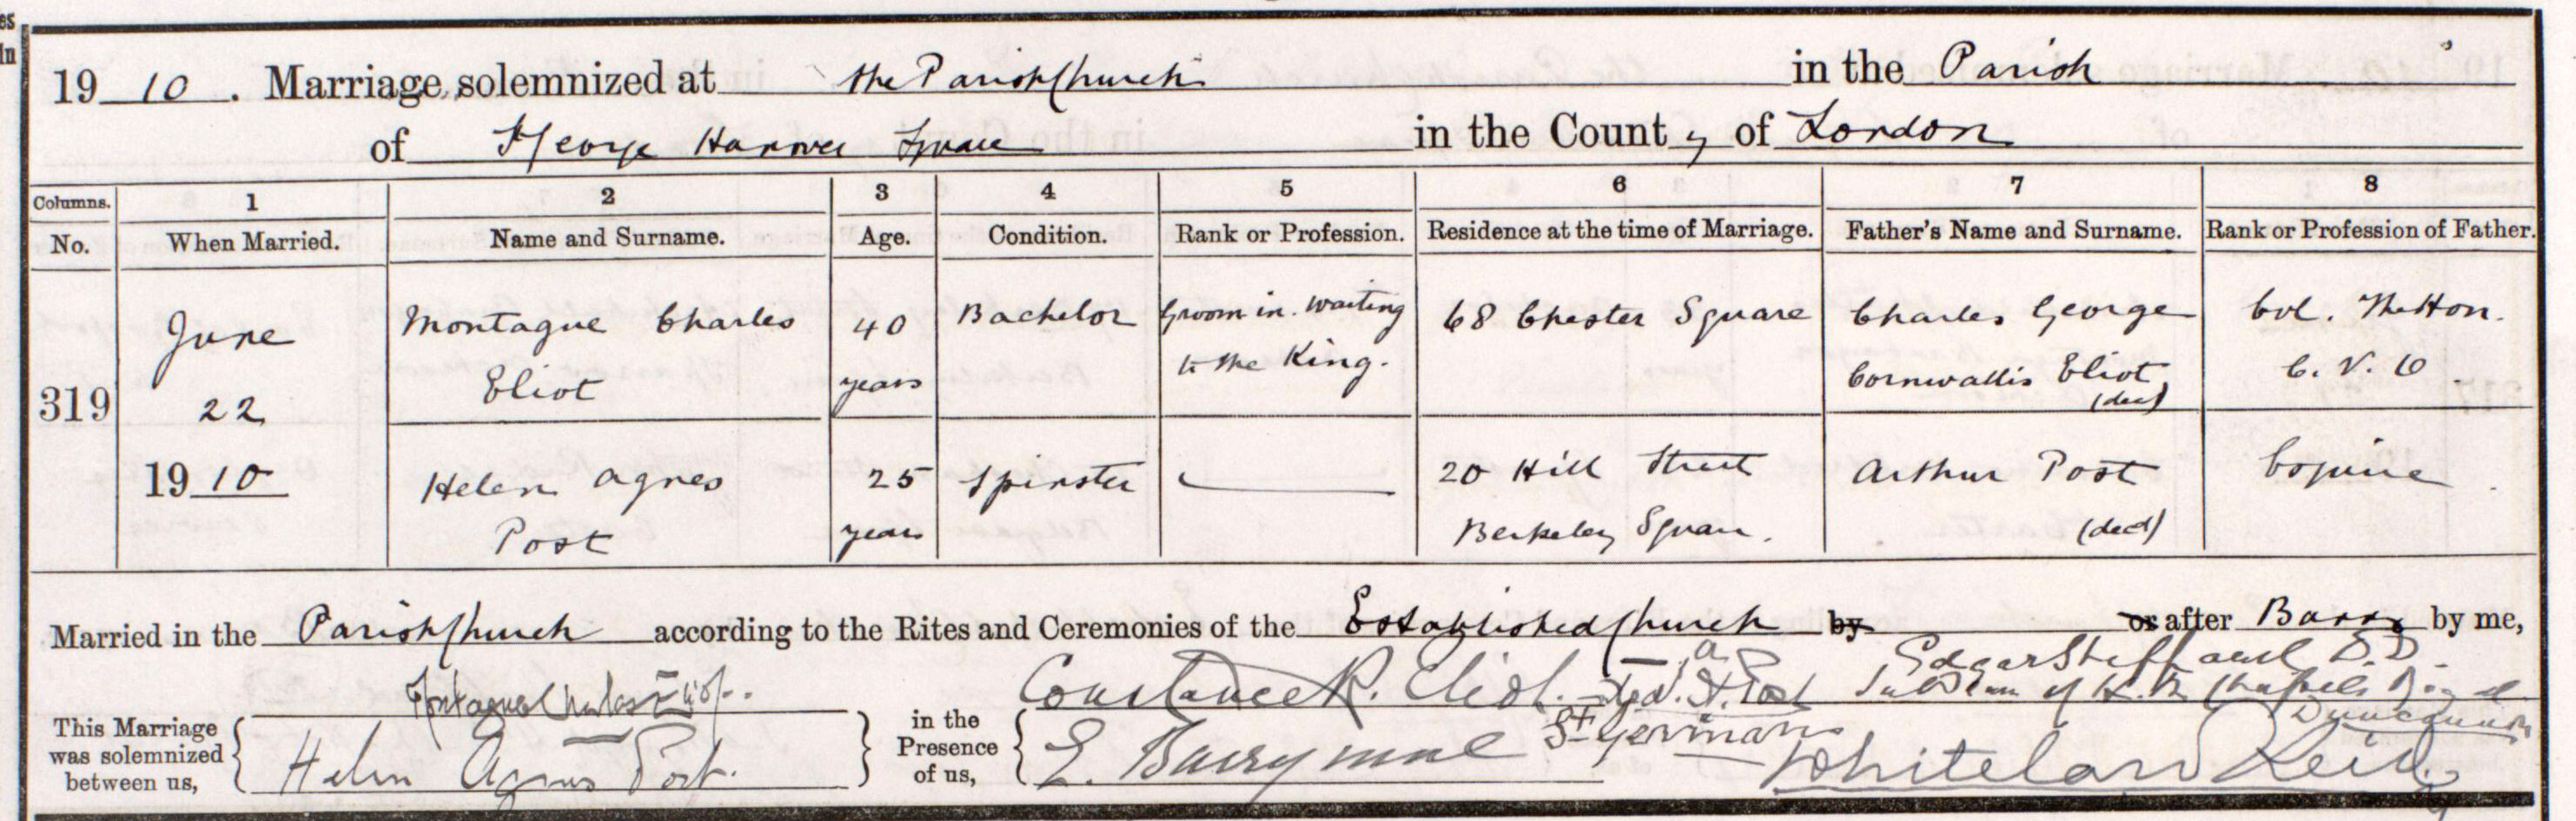 es
in
1910. Marriage solemnized at the Parish Church in the Parish
of St George Hanover Square in the County of London
Columns. 1 2 3 4 5 6 7 8
No. When Married. Name and Surname. Age. Condition. Rank or Profession. Residence at the time of Marriage. Father's Name and Surname. Rank or Profession of Father.
June Montague Charles 40 Bachelor Groom in. Waiting 68 Chester Square Charles George Col. The Hon.
319 22 Eliot years to the King. Cornwallis Eliot, C. V. O
(decd)
1910 Helen Agnes 25 Spinster 20 Hill Street Arthur Post Esquire
Post years Berkeley Square. (decd)
Married in the Parish Church according to the Rites and Ceremonies of the Established Church by or after Banns by me,
Montague Charles Eliot. Constance R. Eliot. A. Post Edgar Sheppard D.D.
Sub Dean of H.M. Chapels Royal
This Marriage was solemnized between us, in the Presence of us,
Helen Agnes Post. E. Barrymore St Germans Whitelaw Reid Duncannon